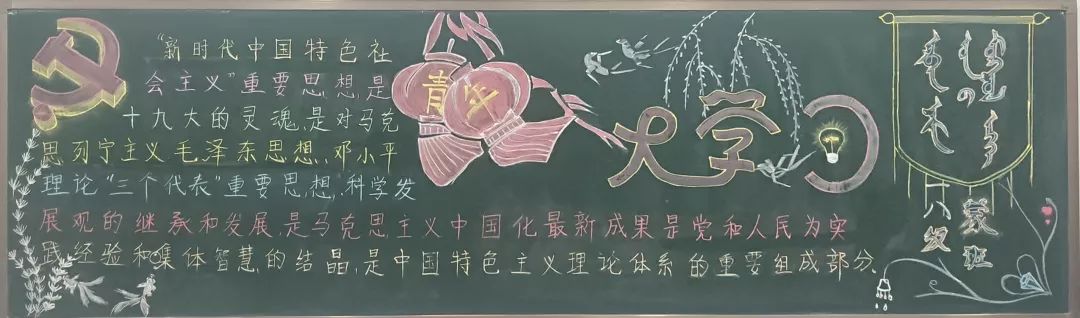 “新时代中国特色社
会主义”重要思想,是
十九大的灵魂,是对马克
思列宁主义毛泽东思想、邓小平
理论“三个代表”重要思想,科学发
展观的继承和发展,是马克思主义中国化最新成果是党和人民为实
践经验和集体智慧的结晶,是中国特色主义理论体系的重要组成部分、
青年
大学习
八级
蒙班